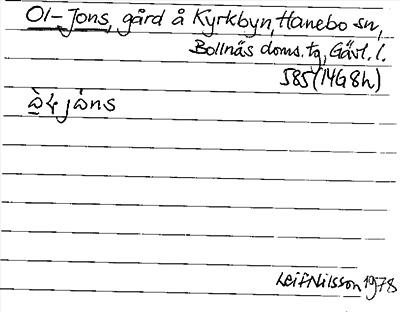 Ol-Jons, gård å Kyrkbyn, Hanebo sn,
Bollnäs doms. tg, Gävl. l.
585 (14G 8h)
Leif Nilsson 1978